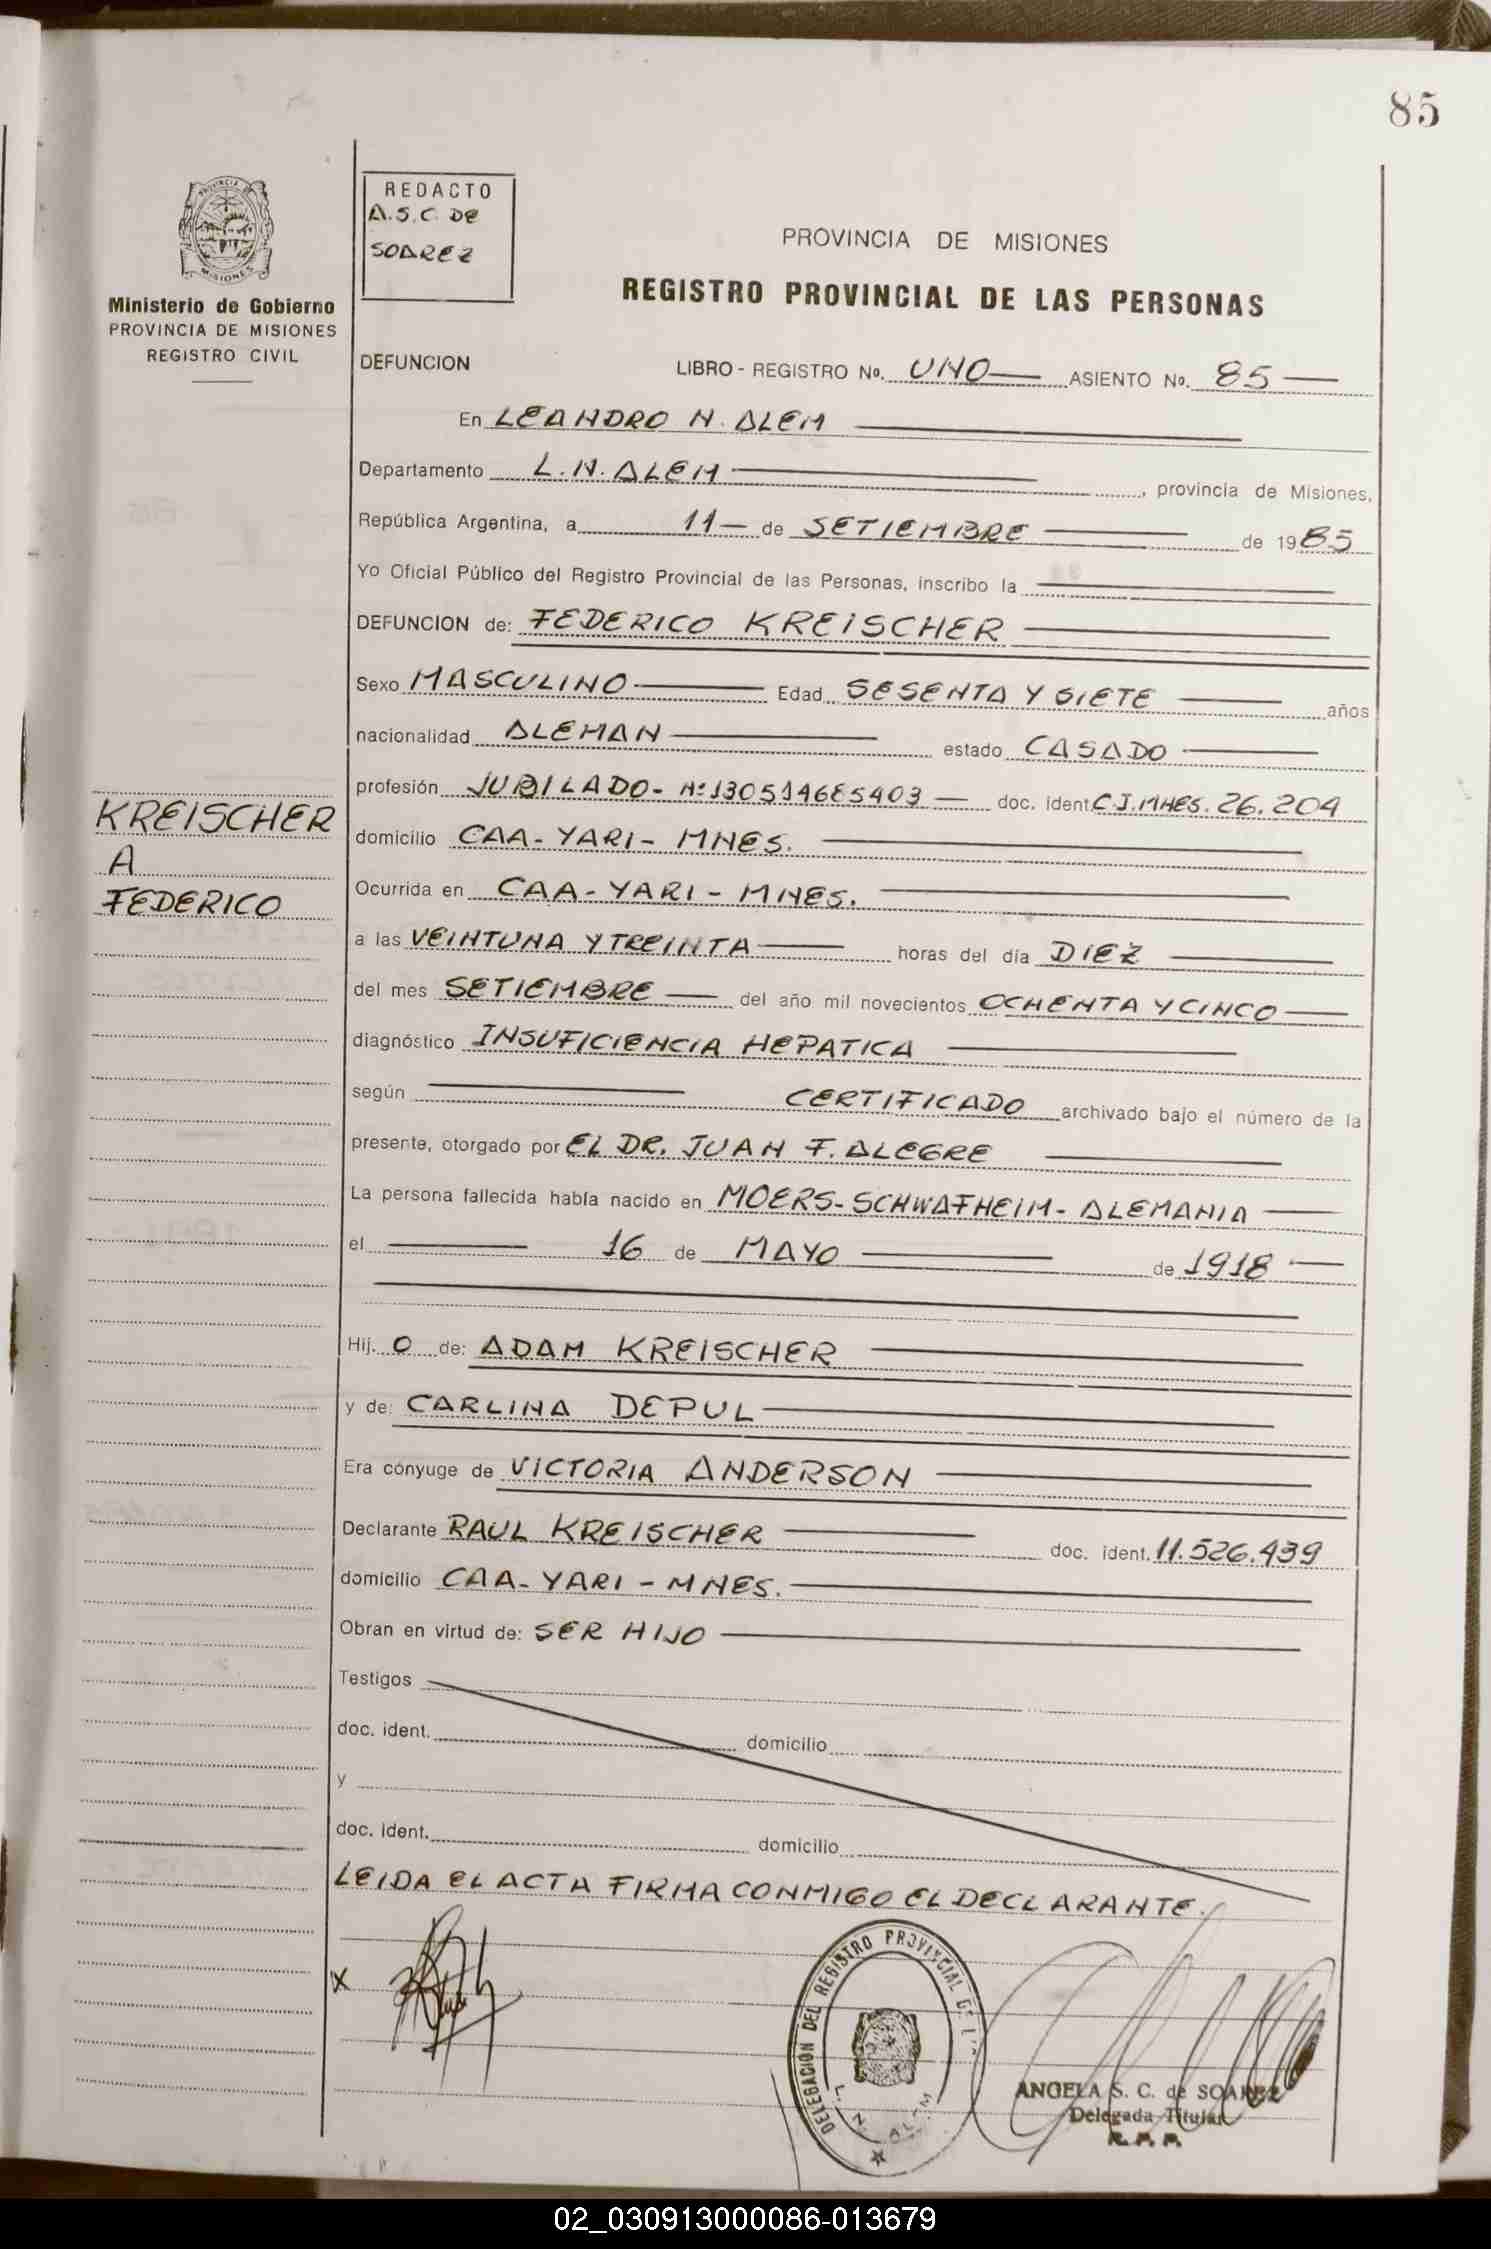 85
PROVINCIA DE
MISIONES
Ministerio de Gobierno
PROVINCIA DE MISIONES
REGISTRO CIVIL
REDACTO
A.S.C. DE
SOAREZ
PROVINCIA DE MISIONES
REGISTRO PROVINCIAL DE LAS PERSONAS
DEFUNCION LIBRO - REGISTRO Nº. UNO ASIENTO Nº. 85
En LEANDRO N. ALEM
Departamento L.N. ALEM, provincia de Misiones,
República Argentina, a 11 de SETIEMBRE de 1985
Yo Oficial Público del Registro Provincial de las Personas, inscribo la
DEFUNCION de: FEDERICO KREISCHER
Sexo MASCULINO Edad SESENTA Y SIETE años
nacionalidad ALEMAN estado CASADO
profesión JUBILADO - Nº 130514685403 doc. ident. C.I. MNES. 26.204
domicilio CAA-YARI - MNES.
KREISCHER
A
FEDERICO
Ocurrida en CAA-YARI - MNES.
a las VEINTUNA Y TREINTA horas del día DIEZ
del mes SETIEMBRE del año mil novecientos OCHENTA Y CINCO
diagnóstico INSUFICIENCIA HEPATICA
según CERTIFICADO archivado bajo el número de la
presente, otorgado por EL DR. JUAN F. ALEGRE
La persona fallecida había nacido en MOERS-SCHWAFHEIM - ALEMANIA
el 16 de MAYO de 1918
Hij. O de: ADAM KREISCHER
y de: CARLINA DEPUL
Era cónyuge de VICTORIA ANDERSON
Declarante RAUL KREISCHER doc. ident. 11.526.439
domicilio CAA-YARI - MNES.
Obran en virtud de: SER HIJO
Testigos
doc. ident. domicilio
y
doc. ident. domicilio
LEIDA EL ACTA FIRMA CONMIGO EL DECLARANTE.
X
DELEGACION DEL REGISTRO PROVINCIAL DE
L. N. ALEM
ANGELA S. C. de SOAREZ
Delegada Titular
R.P.P.
02_030913000086-013679